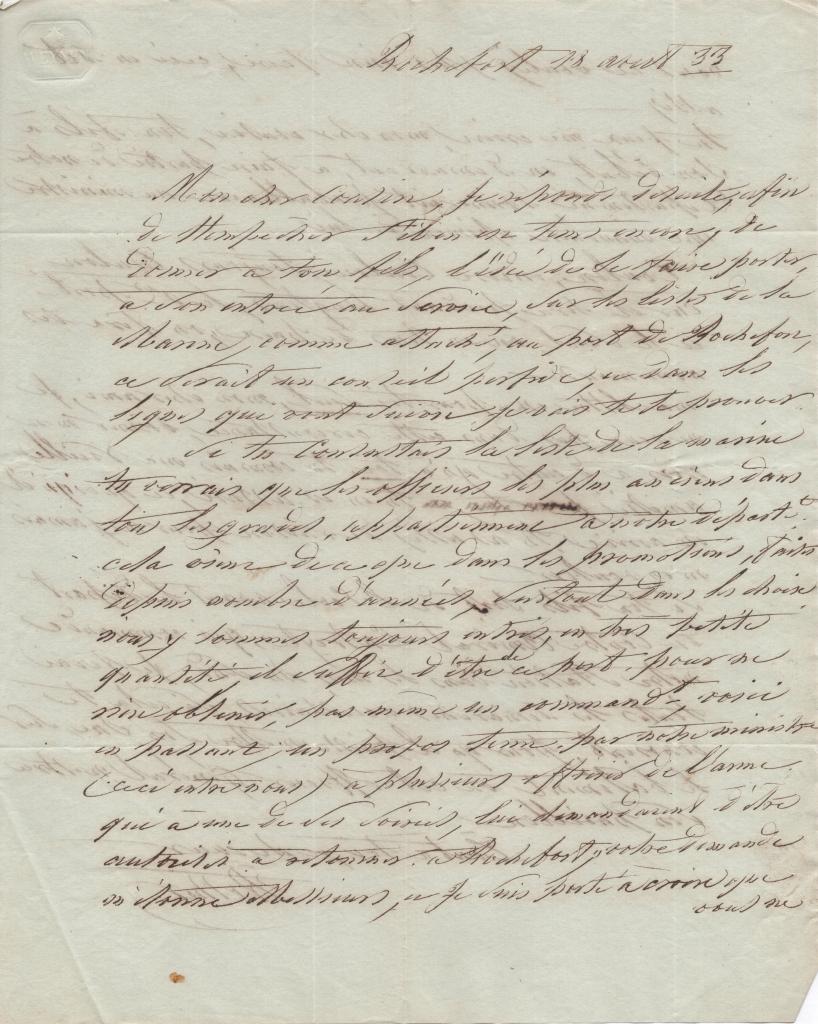 Rochefort 18 aout 33
Mon cher Cousin, je réponds de suite, afin
de t'empêcher s'il en en tems encore, de
donner a ton fils, l'idée de se faire porter,
a son entrée au service, sur les listes de la
Marine, comme attaché, au port de Rochefort,
ce serait un conseil perfide, et dans les
lignes qui vont suivre je vais te le prouver.
Si tu consultais la liste de la marine
tu verrais que les officiers les plus anciens dans
tous les grades, appartiennent à notre départt.
cela vient de ce que dans les promotions, faites
depuis nombre d'années, surtout dans les choix
nous y sommes toujours entrés, en tres petite
quantité, il suffit d'être de ce port, pour ne
rien obtenir, pas même un commandt, voici
en passant, un propos tenu, par notre ministre
(ceci entre nous) à plusieurs officiers de l'arme
qui à une de ses soirées, lui demandaient d'être
autorisés à retourner a Rochefort, votre demande
m'étonne Messieurs, et je suis porté à croire que
vous ne